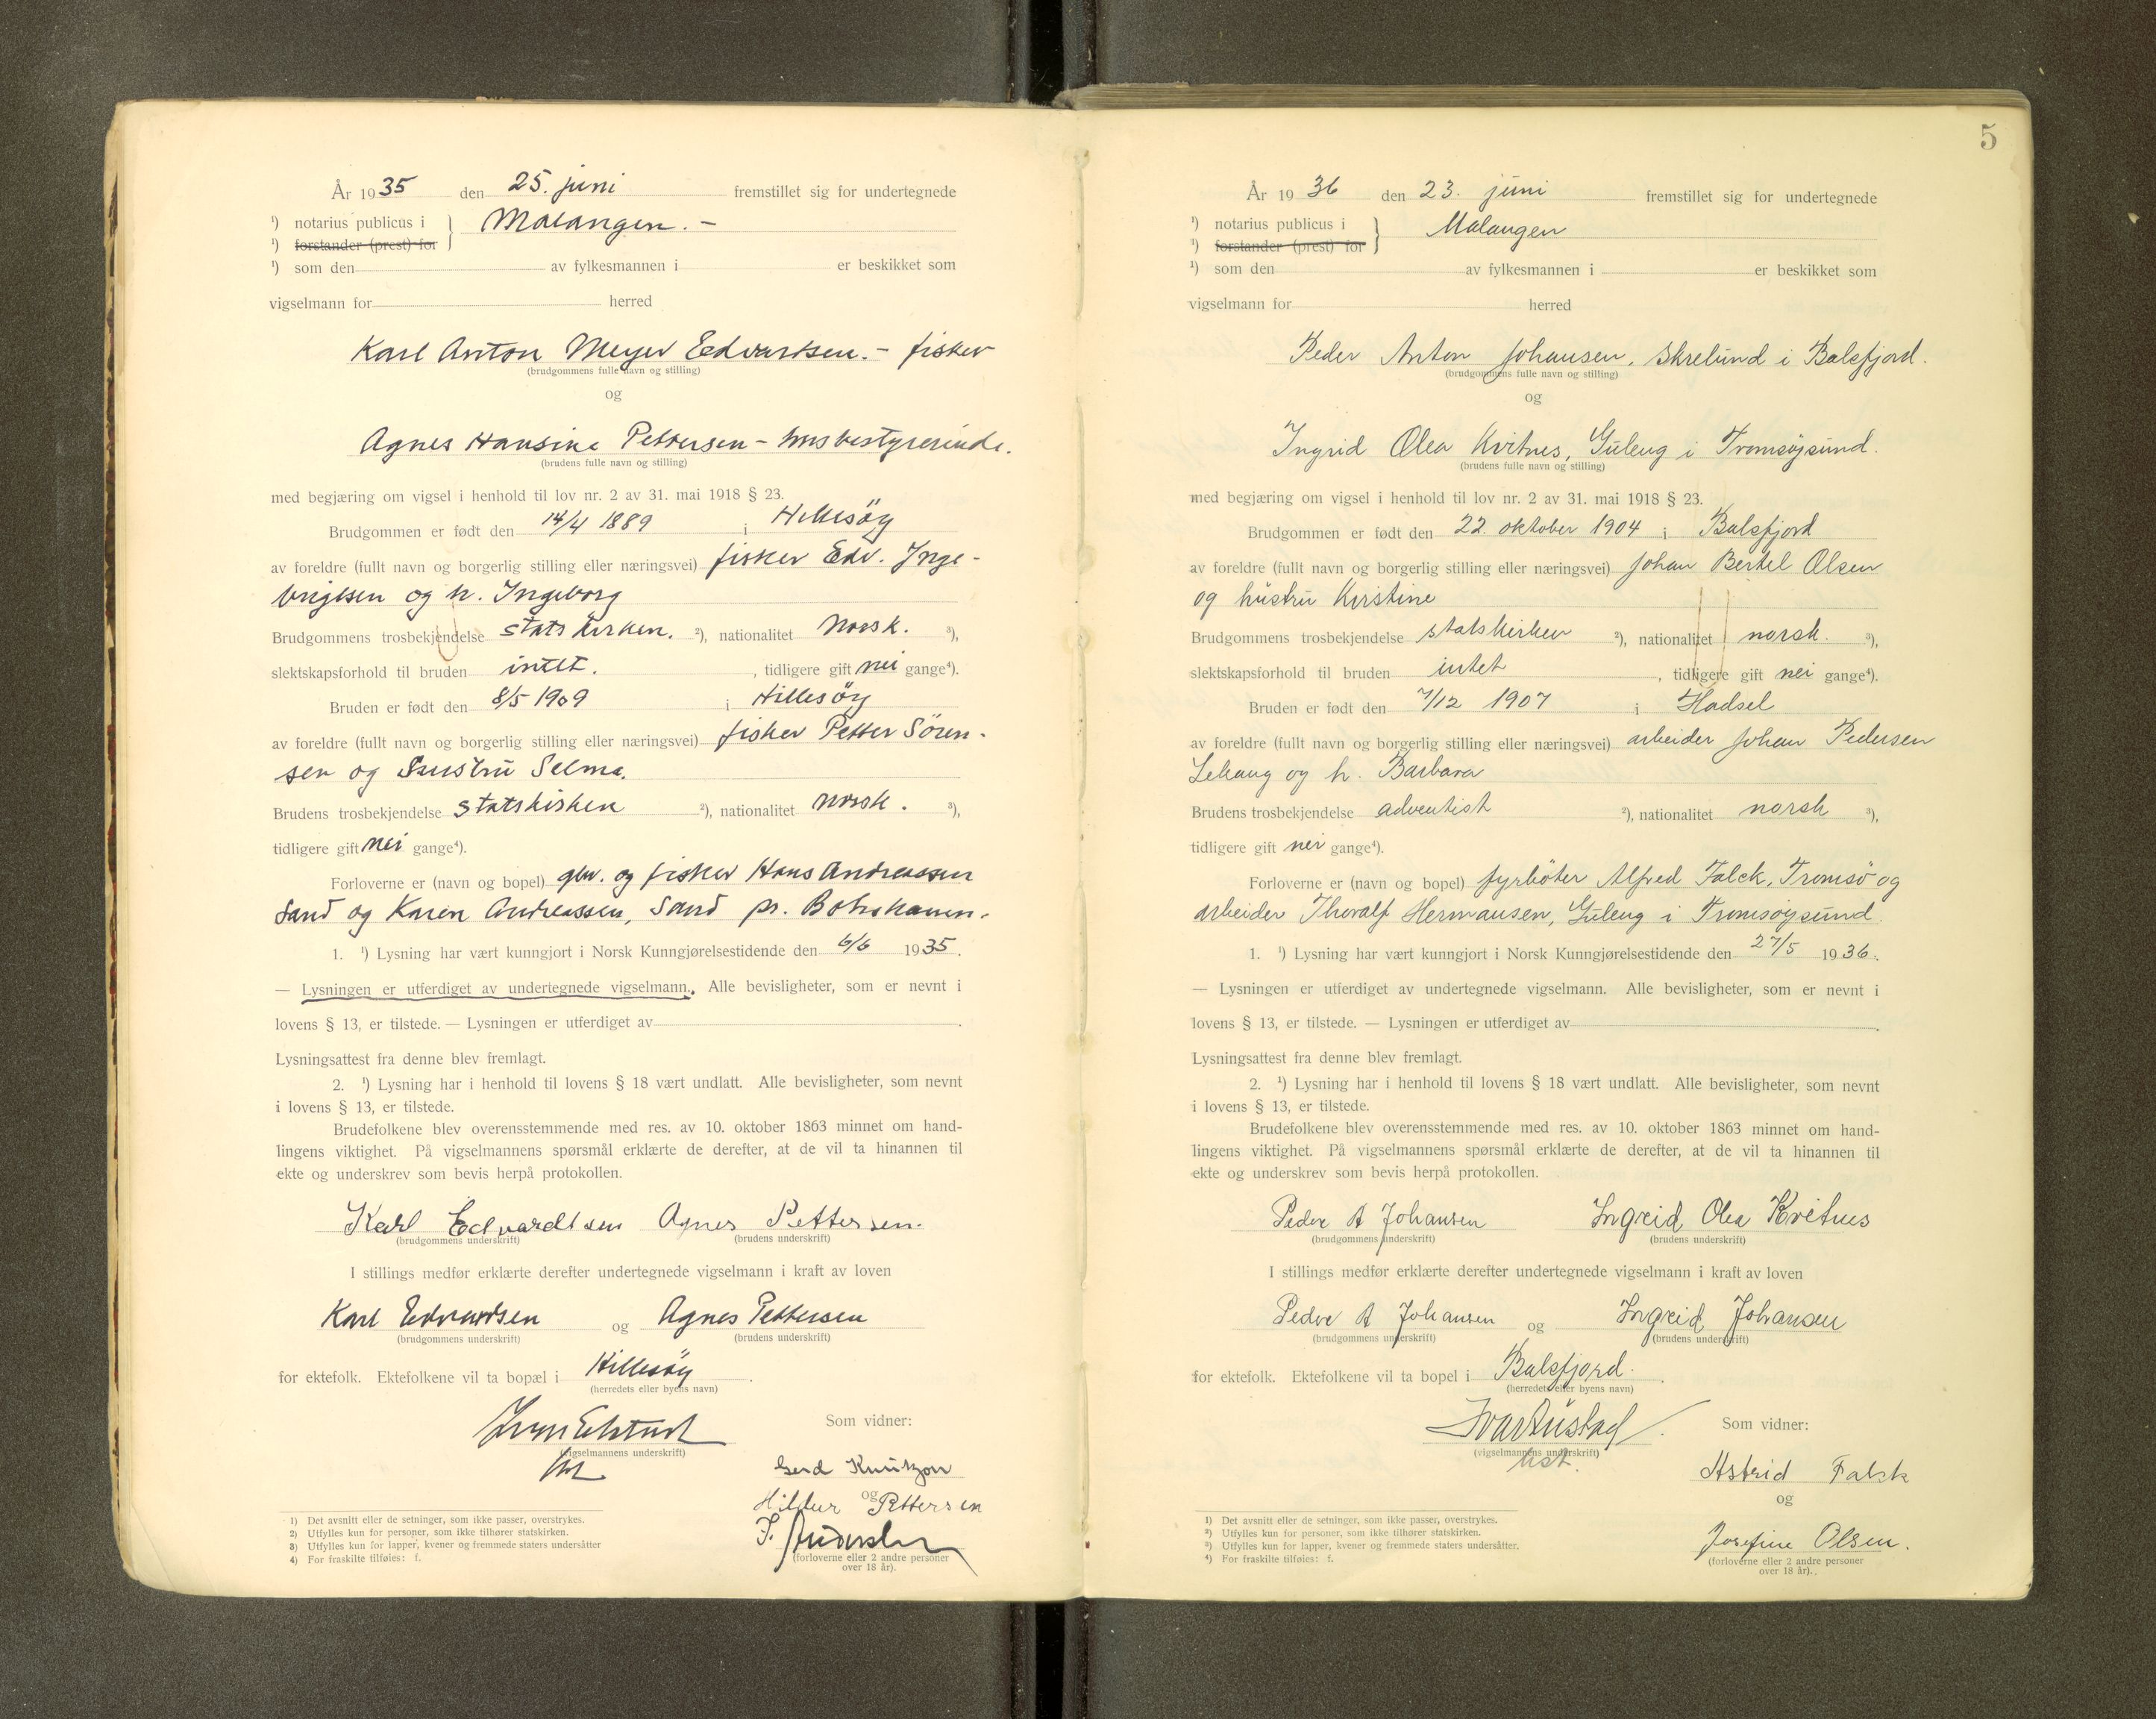 År 1935 den 25. juni fremstillet sig for undertegnede
¹) notarius publicus i } Malangen. –
¹) forstander (prest) for
¹) som den av fylkesmannen i er beskikket som
vigselmann for herred
Karl Anton Meyer Edvartsen. – fisker
(brudgommens fulle navn og stilling)
og
Agnes Hansine Pettersen – husbestyrerinde.
(brudens fulle navn og stilling)
med begjæring om vigsel i henhold til lov nr. 2 av 31. mai 1918 § 23.
Brudgommen er født den 14/4 1889 i Hillesöy
av foreldre (fullt navn og borgerlig stilling eller næringsvei) fisker Edv. Inge-
brigtsen og h. Ingeborg
Brudgommens trosbekjendelse statskirken. ²), nationalitet norsk. ³),
slektskapsforhold til bruden intet. , tidligere gift nei gange⁴).
Bruden er født den 8/5 1909 i Hillesöy
av foreldre (fullt navn og borgerlig stilling eller næringsvei) fisker Petter Sören-
sen og hustru Selma.
Brudens trosbekjendelse statskirken ²), nationalitet norsk. ³),
tidligere gift nei gange⁴).
Forloverne er (navn og bopel) gbr. og fisker Hans Andreassen
Sand og Karen Andreassen, Sand pr.
1. ¹) Lysning har vært kunngjort i Norsk Kunngjørelsestidende den 6/6 1935.
— Lysningen er utferdiget av undertegnede vigselmann. Alle bevisligheter, som er nevnt i
lovens § 13, er tilstede. — Lysningen er utferdiget av .
Lysningsattest fra denne blev fremlagt.
2. ¹) Lysning har i henhold til lovens § 18 vært undlatt. Alle bevisligheter, som nevnt
i lovens § 13, er tilstede.
Brudefolkene blev overensstemmende med res. av 10. oktober 1863 minnet om hand-
lingens viktighet. På vigselmannens spørsmål erklærte de derefter, at de vil ta hinannen til
ekte og underskrev som bevis herpå protokollen.
Karl Edvardtsen Agnes Pettersen.
(brudgommens underskrift) (brudens underskrift)
I stillings medfør erklærte derefter undertegnede vigselmann i kraft av loven
Karl Edvardtsen og Agnes Pettersen
(brudgommens underskrift) (brudens underskrift)
for ektefolk. Ektefolkene vil ta bopæl i Hillesöy .
(herredets eller byens navn)
Som vidner:
(vigselmannens underskrift)
Gerd Knutzon
og
Hildur Pettersen
(forloverne eller 2 andre personer
over 18 år).
1) Det avsnitt eller de setninger, som ikke passer, overstrykes.
2) Utfylles kun for personer, som ikke tilhører statskirken.
3) Utfylles kun for lapper, kvener og fremmede staters undersåtter
4) For fraskilte tilføies: f.
5
År 1936 den 23. juni fremstillet sig for undertegnede
¹) notarius publicus i } Malangen
¹) forstander (prest) for
¹) som den av fylkesmannen i er beskikket som
vigselmann for herred
Peder Anton Johansen, Skrelund i Balsfjord.
(brudgommens fulle navn og stilling)
og
Ingrid Olea Kvitnes, Guleng i Tromsöysund.
(brudens fulle navn og stilling)
med begjæring om vigsel i henhold til lov nr. 2 av 31. mai 1918 § 23.
Brudgommen er født den 22. oktober 1904 i Balsfjord
av foreldre (fullt navn og borgerlig stilling eller næringsvei) Johan Bertel Olsen
og hustru Kirstine
Brudgommens trosbekjendelse statskirken ²), nationalitet norsk. ³),
slektskapsforhold til bruden intet , tidligere gift nei gange⁴).
Bruden er født den 7/12 1907 i Hadsel
av foreldre (fullt navn og borgerlig stilling eller næringsvei) arbeider Johan Pedersen
og h. Barbara
Brudens trosbekjendelse adventist ²), nationalitet norsk ³),
tidligere gift nei gange⁴).
Forloverne er (navn og bopel) fyrböter Alfred Falck, Tromsö og
arbeider Thoralf Hermansen, Guleng i Tromsöysund.
1. ¹) Lysning har vært kunngjort i Norsk Kunngjørelsestidende den 27/5 1936.
— Lysningen er utferdiget av undertegnede vigselmann. Alle bevisligheter, som er nevnt i
lovens § 13, er tilstede. — Lysningen er utferdiget av .
Lysningsattest fra denne blev fremlagt.
2. ¹) Lysning har i henhold til lovens § 18 vært undlatt. Alle bevisligheter, som nevnt
i lovens § 13, er tilstede.
Brudefolkene blev overensstemmende med res. av 10. oktober 1863 minnet om hand-
lingens viktighet. På vigselmannens spørsmål erklærte de derefter, at de vil ta hinannen til
ekte og underskrev som bevis herpå protokollen.
Peder A Johansen Ingrid Olea Kvitnes
(brudgommens underskrift) (brudens underskrift)
I stillings medfør erklærte derefter undertegnede vigselmann i kraft av loven
Peder A Johansen og Ingrid Johansen
(brudgommens underskrift) (brudens underskrift)
for ektefolk. Ektefolkene vil ta bopel i Balsfjord .
(herredets eller byens navn)
Som vidner:
(vigselmannens underskrift)
Astrid Falck
og
Josefine Olsen.
(forloverne eller 2 andre personer
over 18 år).
¹) Det avsnitt eller de setninger, som ikke passer, overstrykes.
²) Utfylles kun for personer, som ikke tilhører statskirken.
³) Utfylles kun for lapper, kvener og fremmede staters undersåtter.
⁴) For fraskilte tilføies: f.